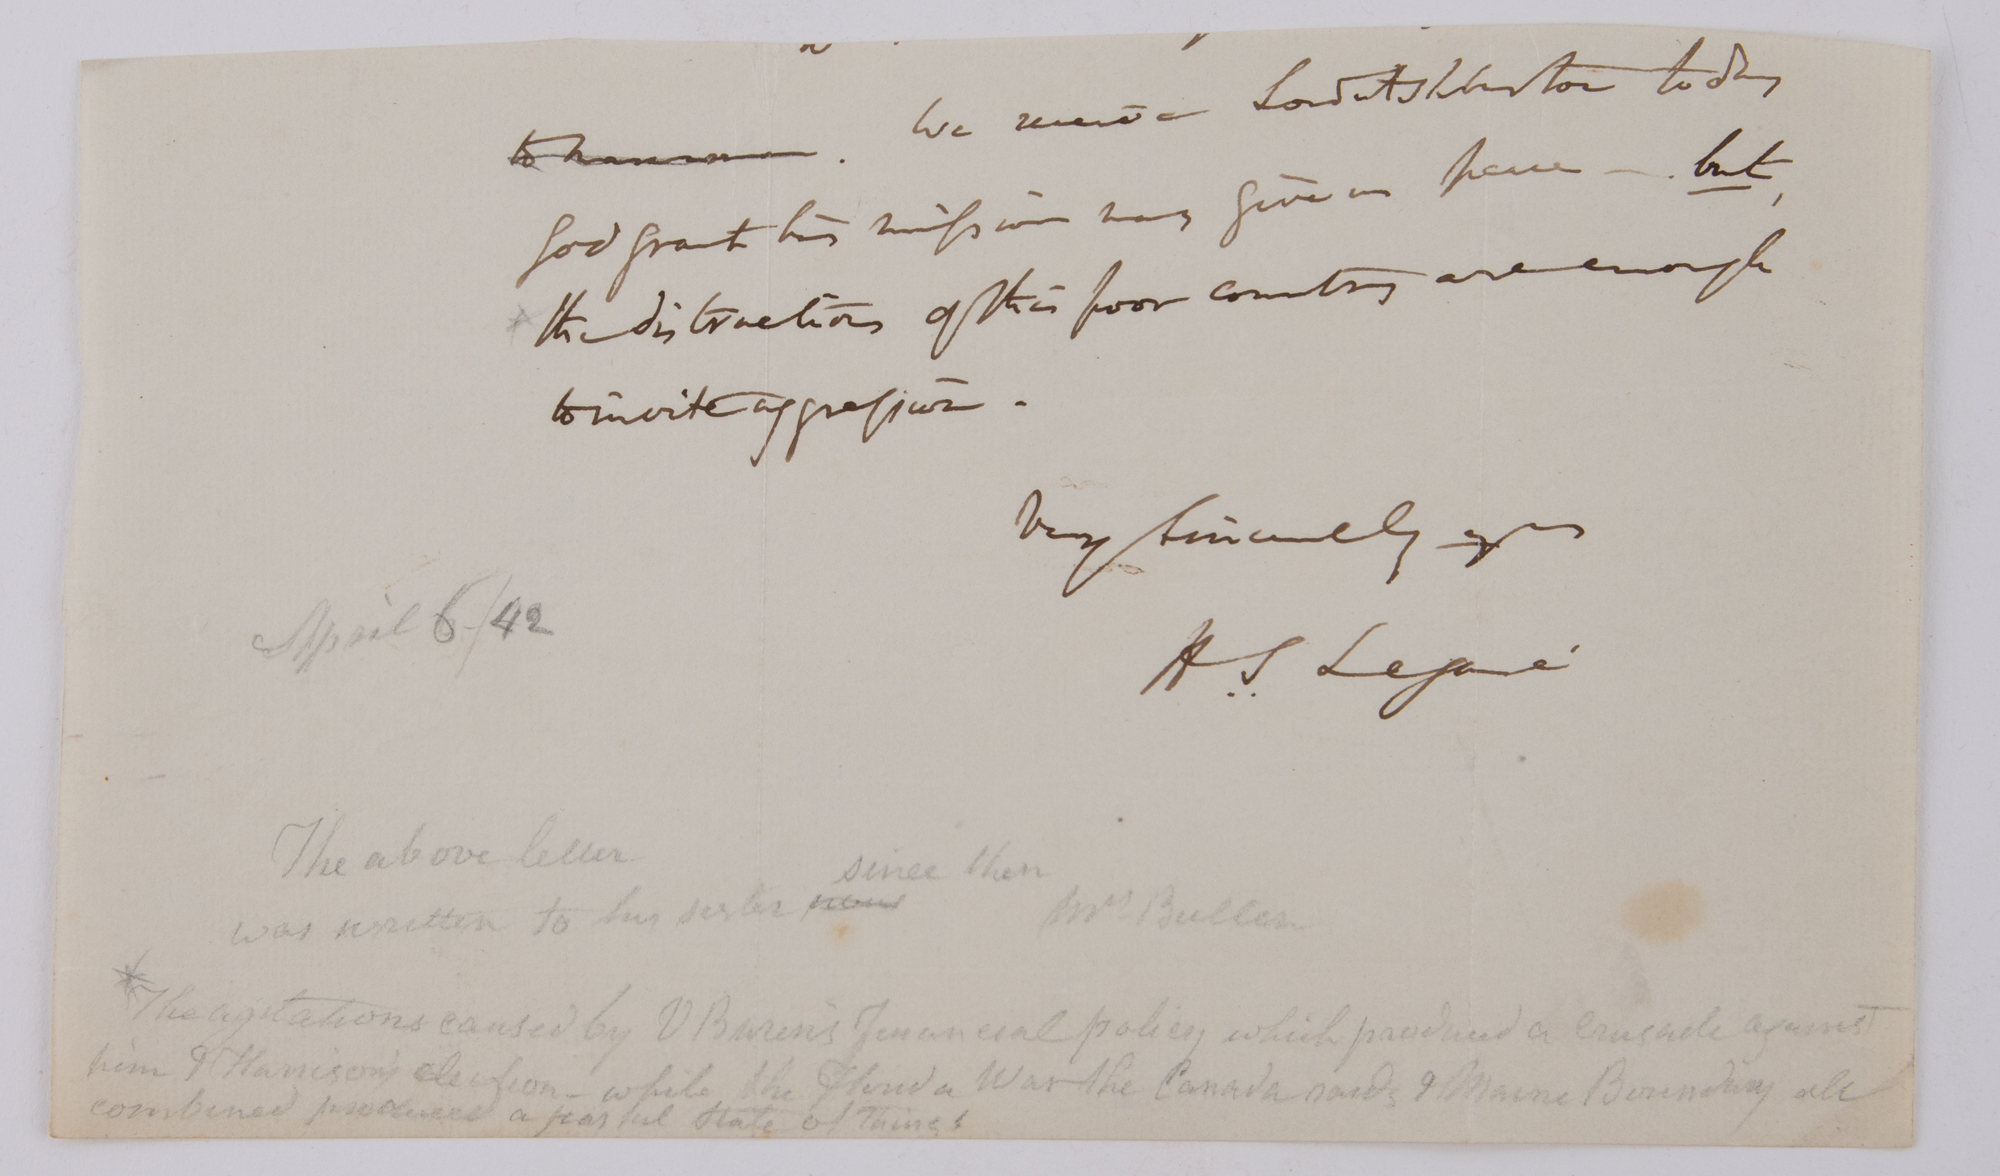 We receive Lord Ashburton today
God grant his mission may give us peace — but,
the distractions of this poor country are enough
to invite aggression.
Very sincerely yrs
H S Legaré
April 6/42
The above letter
since then
was written to his sister now Mrs Bullen
* The agitations caused by V Buren's Financial policy which produced a crusade against
him & Harrison's election - while the Florida War the Canada raids & Maine Boundary all
combined produced a fearful state of Things